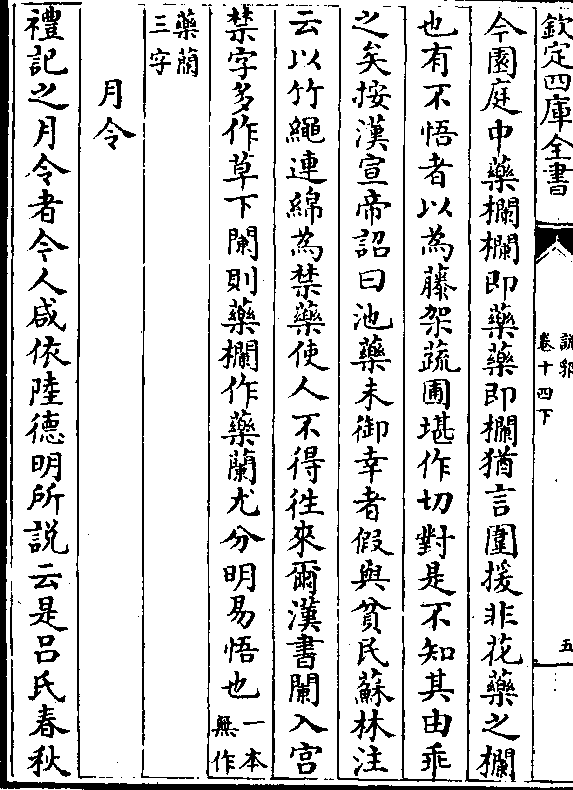 欽定四庫全書
說郛
卷十四下
五
今園庭中藥欄欄即藥藥即欄猶言圍援非花藥之欄
也有不悟者以為藤架蔬圃堪作切對是不知其由乖
之矣按漢宣帝詔曰池藥未御幸者假與貧民蘇林注
云以竹繩連綿為禁藥使人不得徃來爾漢書闌入宫
禁字多作草下闌則藥欄作藥蘭尤分明易悟也一本無作
藥蘭三字
月令
禮記之月令者今人咸依陸德明所説云是吕氏春秋